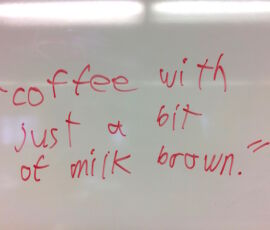 "coffee with
just a bit
of milk brown."